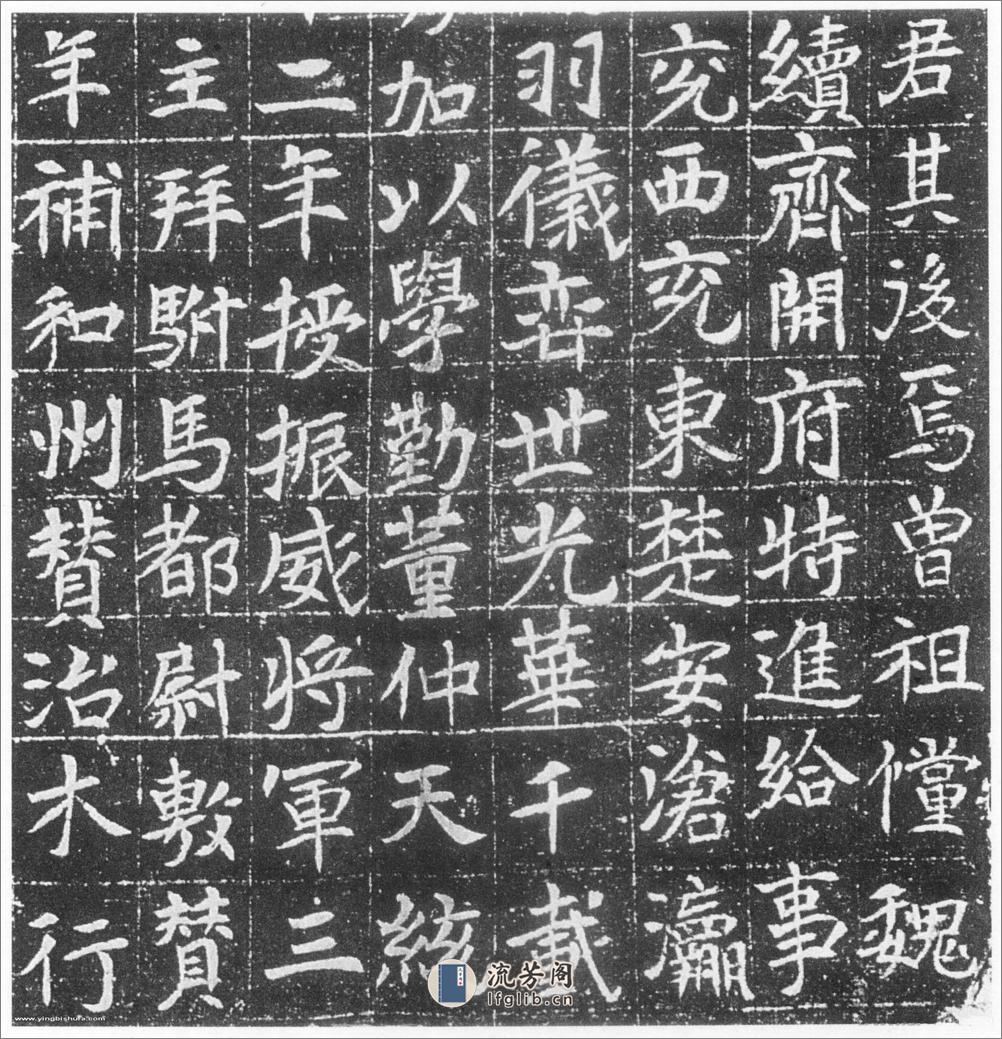 君其後焉曾祖儻魏
續齊開府特進給事
兖西兖東楚安滄瀛
羽儀弈世光華千載
加以學勤董仲天縱
二年授振威將軍三
主拜駙馬都尉敷贊
年補和州贊治木行
流芳阁
lfglib.cn
www.yingbishufa.com